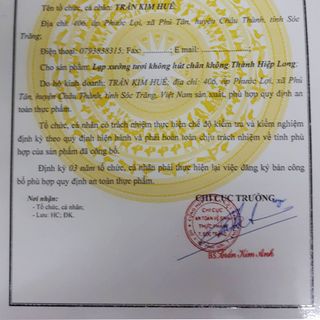 Tên tổ chức, cá nhân: TRẦN KIM HUÊ.
Địa chỉ: 406, ấp Phước Lợi, xã Phú Tân, huyện Châu Thành, tỉnh Sóc
Trăng;
Điện thoại: 0793858315; Fax: ; E mail:
Cho sản phẩm: Lạp xưởng tươi không hút chân không Thành Hiệp Long.
Do hộ kinh doanh: TRẦN KIM HUÊ, địa chỉ: 406, ấp Phước Lợi, xã Phú
Tân, huyện Châu Thành, tỉnh Sóc Trăng, Việt Nam sản xuất, phù hợp quy định an
toàn thực phẩm.
Tổ chức, cá nhân có trách nhiệm thực hiện chế độ kiểm tra và kiểm nghiệm
định kỳ theo quy định hiện hành và phải hoàn toàn chịu trách nhiệm về tính phù
hợp của sản phẩm đã công bố.
Định kỳ 03 năm tổ chức, cá nhân phải thực hiện lại việc đăng ký bản công
bố phù hợp quy định an toàn thực phẩm.
Nơi nhận:
- Tổ chức, cá nhân;
- Lưu: HC; ĐK.
CHI CỤC TRƯỞNG
CHI CỤC
AN TOÀN VỆ SINH
THỰC PHẨM
T. SÓC TRĂNG
BS. Trần Kim Anh